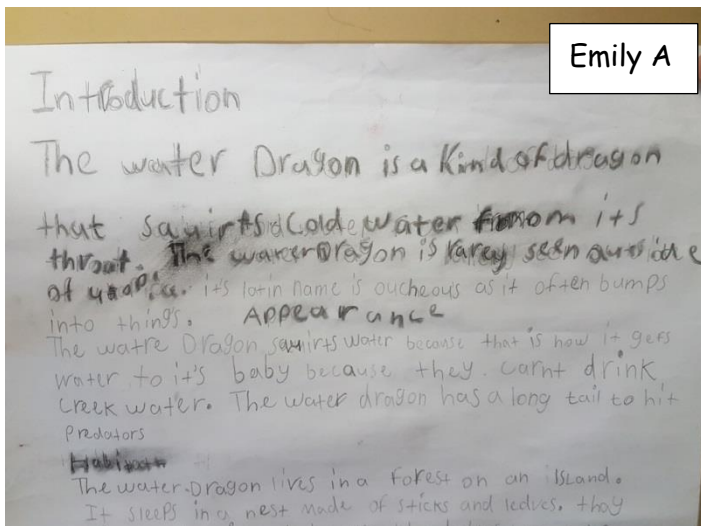 Emily A
Introduction
The water Dragon is a Kind of dragon
that squirts Cold water from its
throat. The water Dragon is rarey seen outside
of it's lotin name is oucheous as it often bumps
into things. APPearance
The watre Dragon squirts water because that is how it gets
water to it's baby because they carnt drink
creek water. The water dragon has a long tail to hit
predators
Habitat
The water Dragon lives in a Forest on an iSLand.
It sleeps in a nest made of sticks and leaves. thay